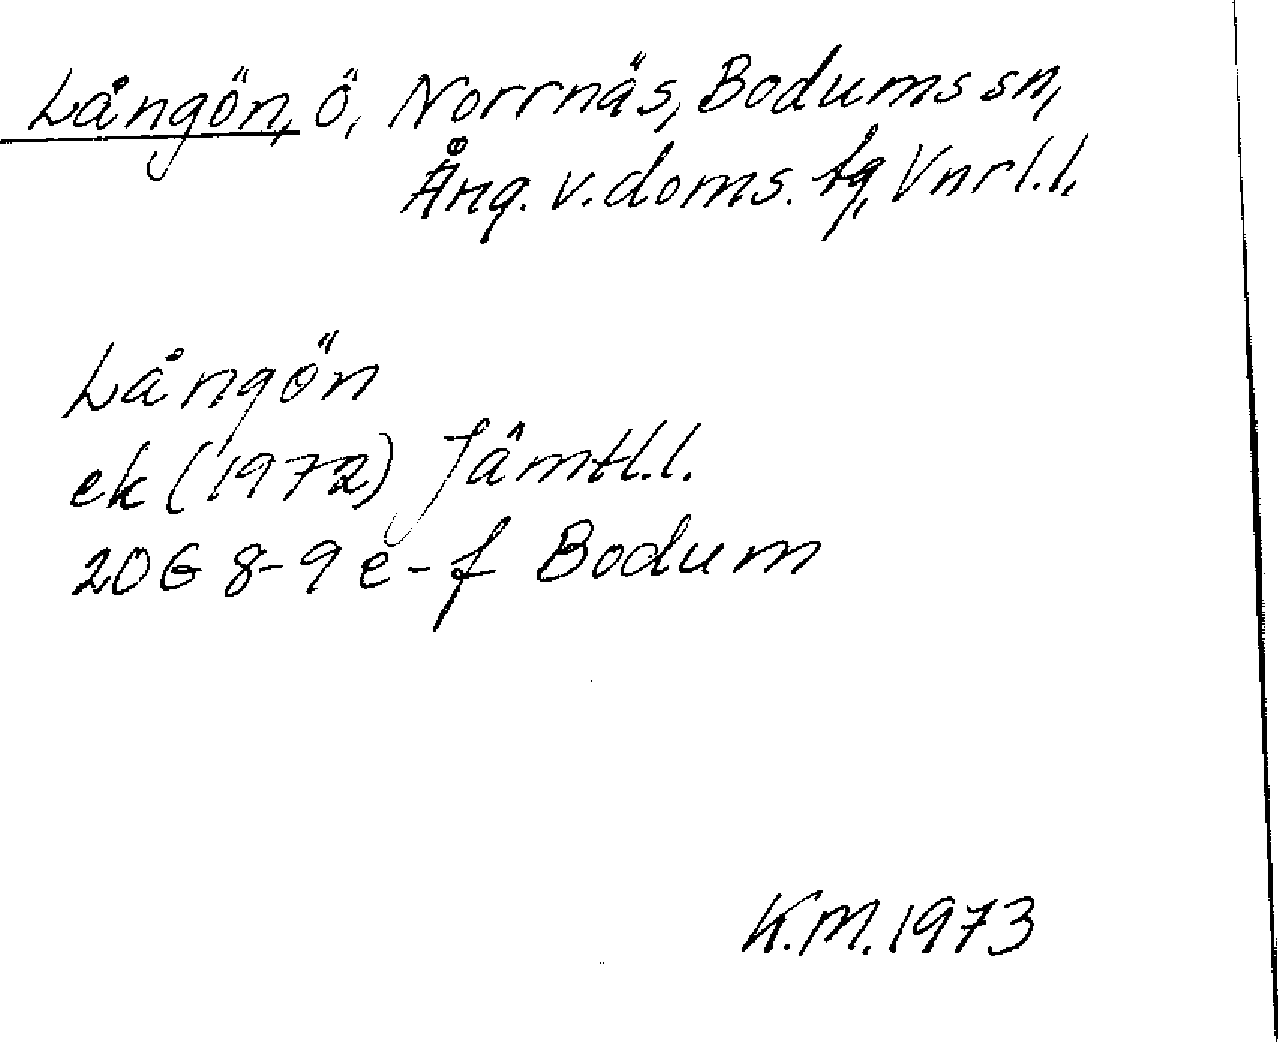 Långön, ö, Norrnäs, Bodums sn,
Ång. v. doms. tg, Vnrl. l.
Långön
ek (1972) Jämtl. l.
20G 8-9 e-f Bodum
K.M. 1973